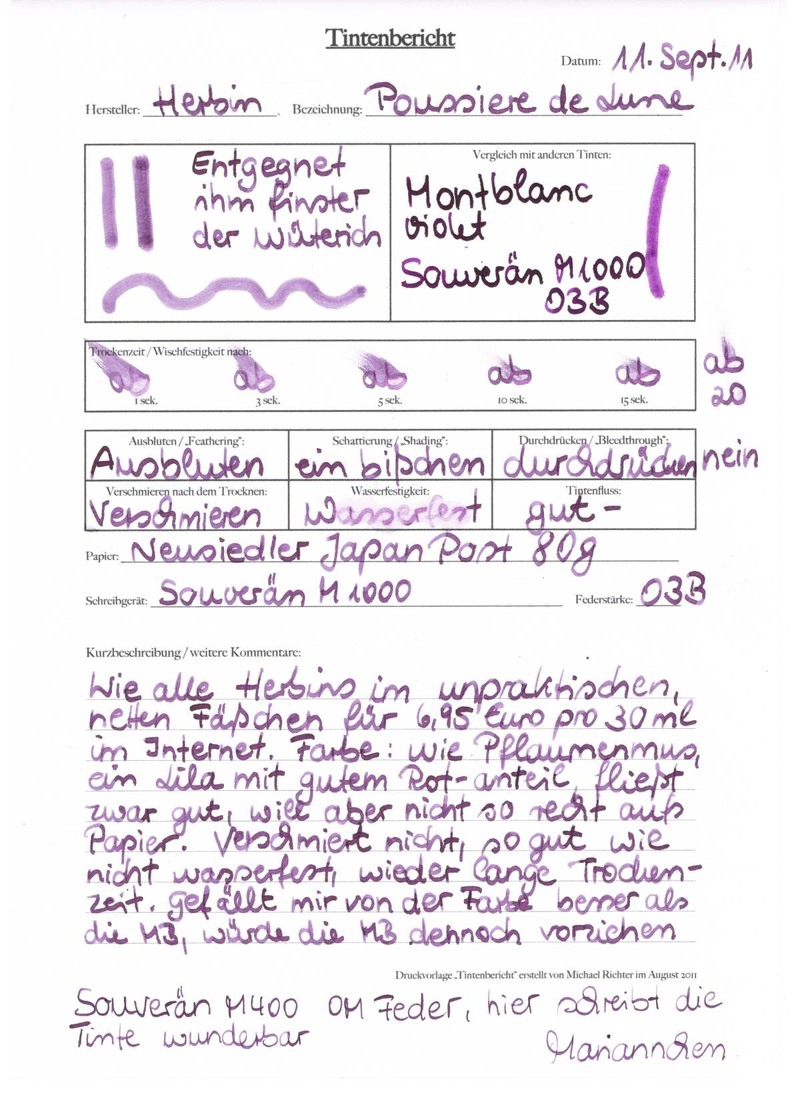 Tintenbericht
Datum: 11. Sept. 11
Hersteller: Herbin Bezeichnung: Poussiere de Lune
Entgegnet
ihm finster
der Wüterich
Vergleich mit anderen Tinten:
Montblanc
violet
Souverän M1000
O3B
Trockenzeit / Wischfestigkeit nach:
ab ab ab ab ab ab
1 sek. 3 sek. 5 sek. 10 sek. 15 sek. 20
Ausbluten / „Feathering“: Schattierung / „Shading“: Durchdrücken / „Bleedthrough“:
Ausbluten ein bißchen durchdrücken nein
Verschmieren nach dem Trocknen: Wasserfestigkeit: Tintenfluss:
Verschmieren Wasserfest gut -
Papier: Neusiedler Japan Post 80g
Schreibgerät: Souverän M 1000 Federstärke: O3B
Kurzbeschreibung / weitere Kommentare:
Wie alle Herbins im unpraktischen,
netten Fäßchen für 6,95 Euro pro 30 ml
im Internet. Farbe: wie Pflaumenmus,
ein Lila mit gutem Rot-anteil, fließt
zwar gut, will aber nicht so recht aufs
Papier. Verschmiert nicht, so gut wie
nicht wasserfest, wieder lange Trocken-
zeit. gefällt mir von der Farbe besser als
die MB, würde die MB dennoch vorziehen
Druckvorlage „Tintenbericht“ erstellt von Michael Richter im August 2011
Souverän M400 OM Feder, hier schreibt die
Tinte wunderbar
Mariannchen